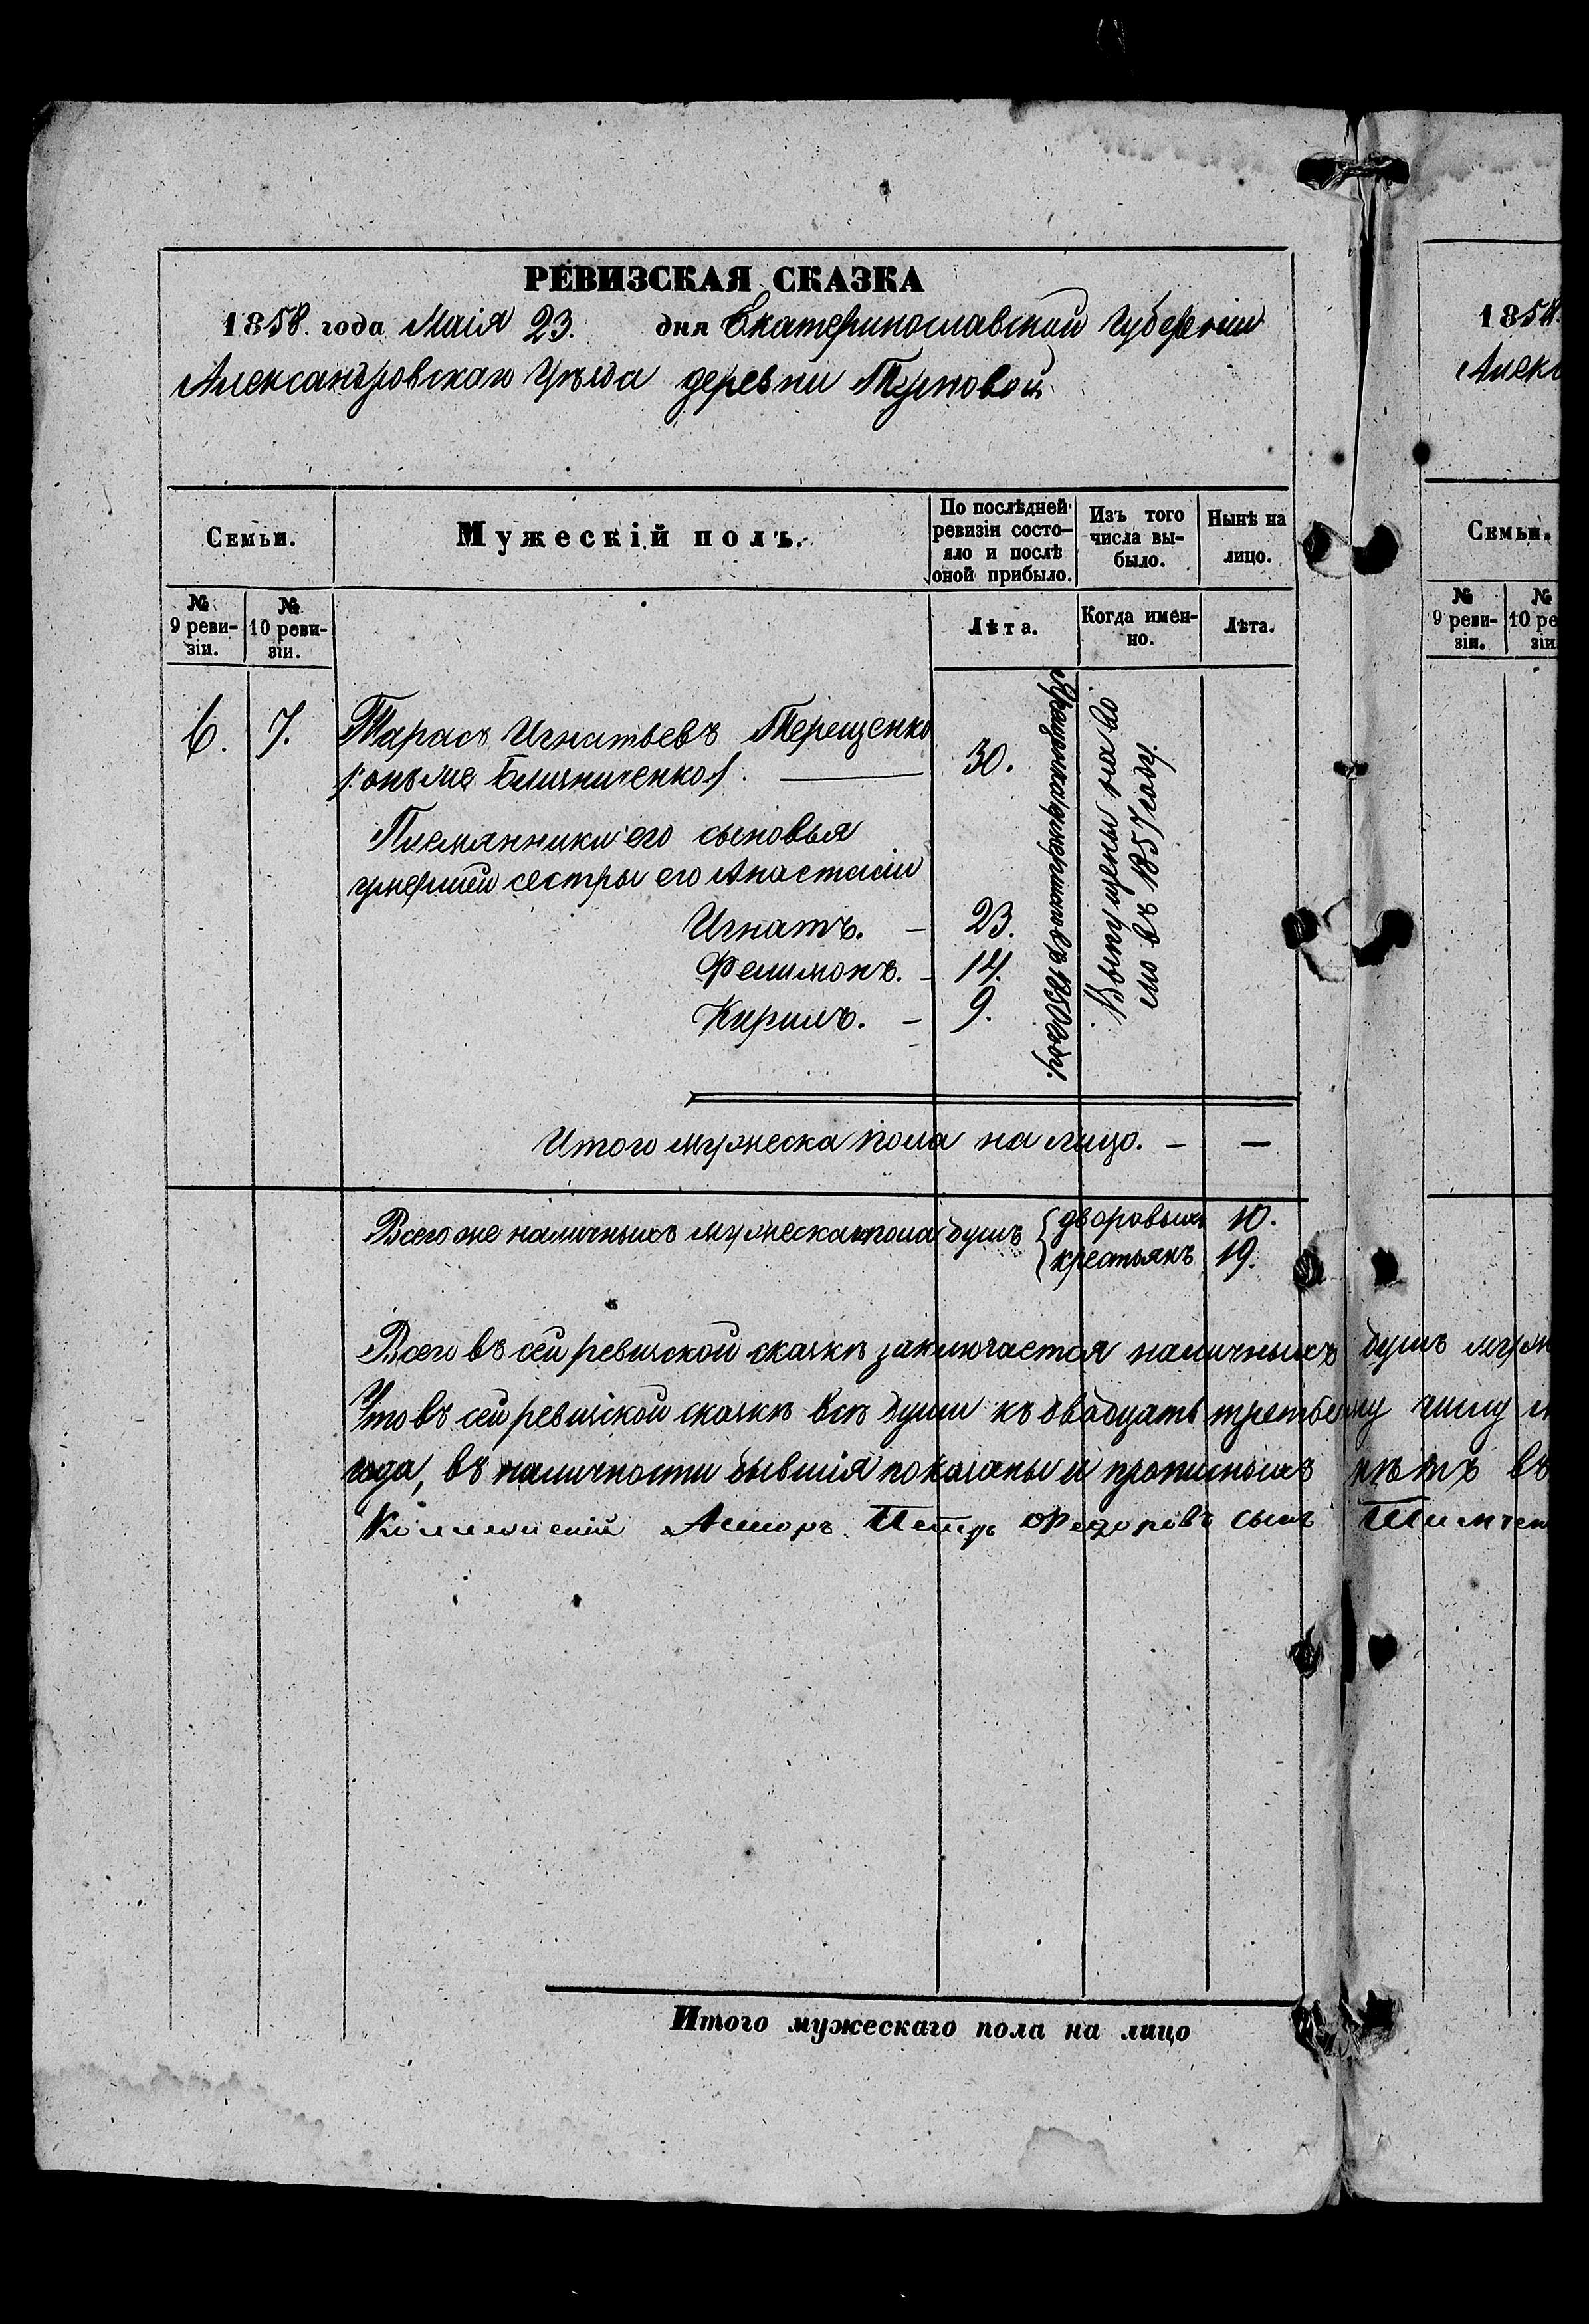 РЕВИЗСКАЯ СКАЗКА
1858. года Маія 23. дня Екатеринославской Губерніи
Александровскаго Уѣзда деревни Терновой.
Семьи.
Мужескій полъ.
По послѣдней ревизіи состо-
яло и послѣ
оной прибыло.
Изъ того
числа вы-
было.
Нынѣ на
лицо.
№
9 реви-
зіи.
№
10 реви-
зіи.
Лѣта.
Когда имен-
но.
Лѣта.
6. 7. Тарасъ Игнатьевъ Терещенко
/:онъ же Близниченко:/ — 30.
Племянники его сыновья
умершей сестры его Анастасіи
Игнатъ. — 23.
Филимонъ. — 14.
Кирилъ. — 9.
умершаго въ 1850 году.
Выпущены на во
лю въ 1857 году.
Итого мужеска пола на лицо. — —
Всего же наличныхъ мужеска пола душъ { дворовыхъ 10.
крестьянъ 19.
Всего въ сей ревизской сказкѣ заключается наличныхъ душъ муж
Что въ сей ревизской сказкѣ всѣ души къ двадцать третьему числу М
года, въ наличности бывшія показаны и прописныхъ нѣтъ въ
Петръ Федоровъ сынъ
Итого мужескаго пола на лицо
1858.
Алекс
Семьи.
№
9 реви-
зіи.
№
10 ре
зіи